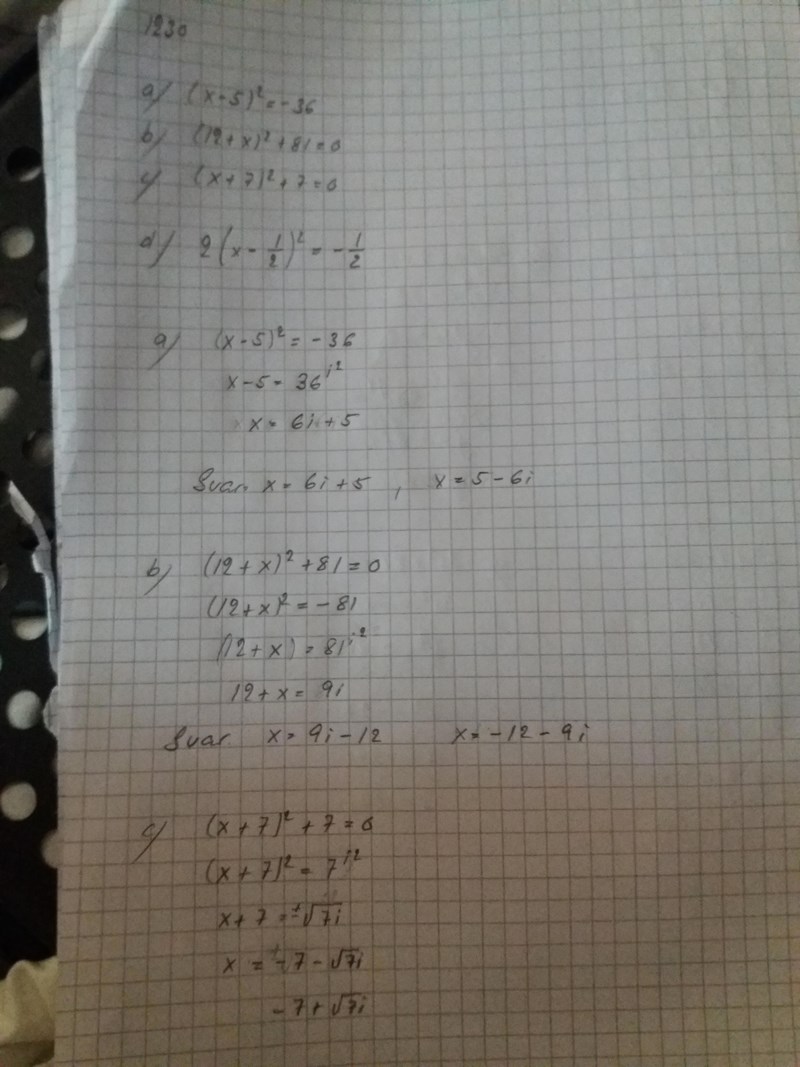 1230
a) (x-5)² = -36
b) (12+x)² + 81 = 0
c) (x+7)² + 7 = 0
d) 2(x - 1/2)² = -1/2
a) (x-5)² = -36
x-5 = 36i²
x = 6i + 5
Svar. x = 6i + 5 , x = 5 - 6i
b) (12+x)² + 81 = 0
(12+x)² = -81
(12+x) = 81i²
12+x = 9i
Svar. x = 9i - 12 x = -12 - 9i
c) (x+7)² + 7 = 0
(x+7)² = 7i²
x+7 = ±√7i
x = -7 - √7i
-7 + √7i